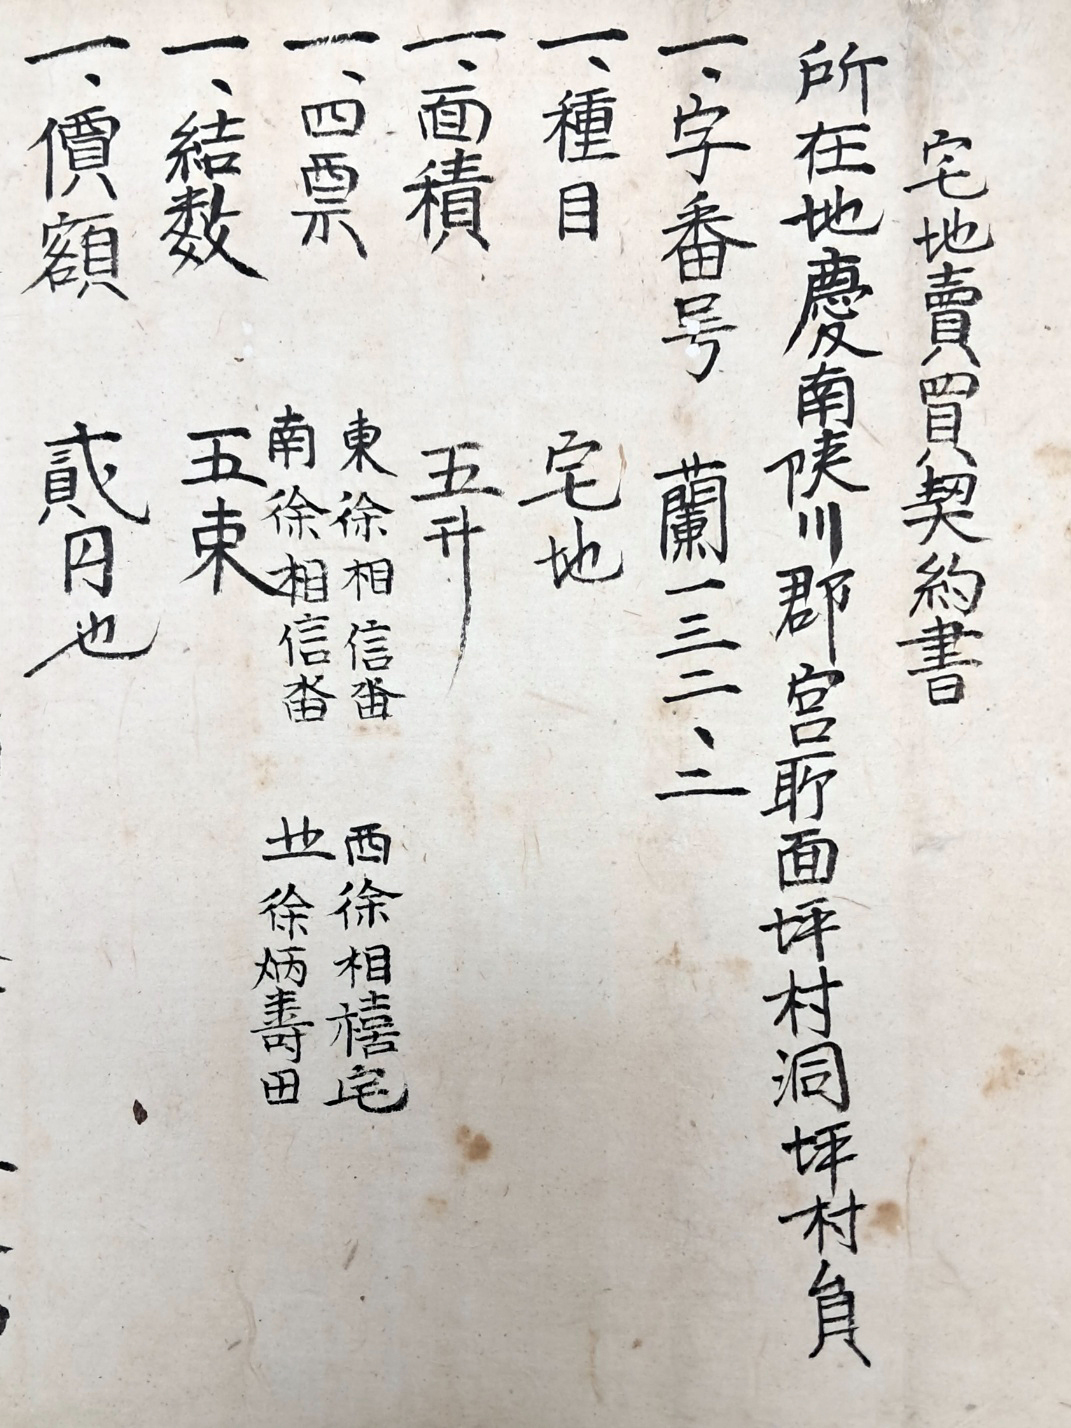 宅地賣買契約書
所在地慶南陜川郡宮所面坪村洞坪村員
一、字番号 蘭一三二、二
一、種目 宅地
一、面積 五升
一、四票 東徐相信畓 西徐相禧宅
南徐相信畓 北徐炳壽田
一、結数 五束
一、價額 貳円也